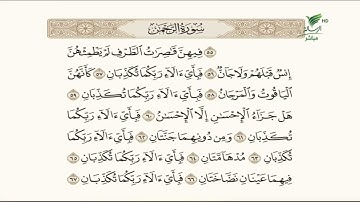 سُورَةُ الرَّحْمَٰن
HD
مباشر
٥٥ فِيهِنَّ قَٰصِرَٰتُ ٱلطَّرْفِ لَمْ يَطْمِثْهُنَّ
إِنسٌ قَبْلَهُمْ وَلَا جَآنٌّ ٥٦ فَبِأَيِّ ءَالَآءِ رَبِّكُمَا تُكَذِّبَانِ ٥٧ كَأَنَّهُنَّ
ٱلْيَاقُوتُ وَٱلْمَرْجَانُ ٥٨ فَبِأَيِّ ءَالَآءِ رَبِّكُمَا تُكَذِّبَانِ ٥٩
هَلْ جَزَآءُ ٱلْإِحْسَٰنِ إِلَّا ٱلْإِحْسَٰنُ ٦٠ فَبِأَيِّ ءَالَآءِ رَبِّكُمَا
تُكَذِّبَانِ ٦١ وَمِن دُونِهِمَا جَنَّتَانِ ٦٢ فَبِأَيِّ ءَالَآءِ رَبِّكُمَا
تُكَذِّبَانِ ٦٣ مُدْهَآمَّتَانِ ٦٤ فَبِأَيِّ ءَالَآءِ رَبِّكُمَا تُكَذِّبَانِ ٦٥
فِيهِمَا عَيْنَانِ نَضَّاخَتَانِ ٦٦ فَبِأَيِّ ءَالَآءِ رَبِّكُمَا تُكَذِّبَانِ ٦٧